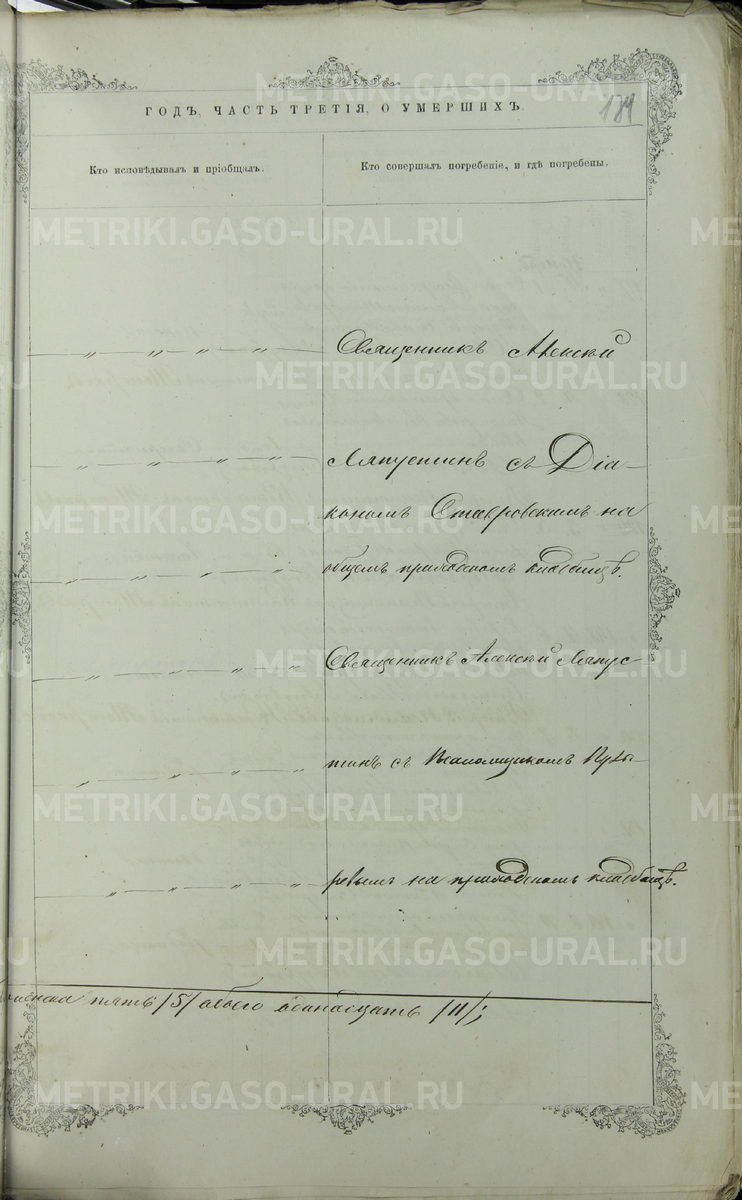 ГОДЪ, ЧАСТЬ ТРЕТІЯ, О УМЕРШИХЪ.
Кто исповѣдывалъ и пріобщалъ.
Кто совершалъ погребеніе, и гдѣ погребены.
Священникъ Алексій
— „ — „ — „ — „ —
Ляпустинъ съ Діа-
— „ — „ — „ — „ —
кономъ Ставровскимъ на
общемъ приходскомъ кладбищѣ.
— „ — „ — „ — „ —
Священникъ Алексій Ляпус-
— „ — „ — „ — „ —
тинъ съ Псаломщикомъ
— „ — „ — „ — „ —
ревымъ на приходскомъ кладбищѣ.
— „ — „ — „ — „ —
женска пять /5/ обоего /11/;
METRIKI.GASO-URAL.RU